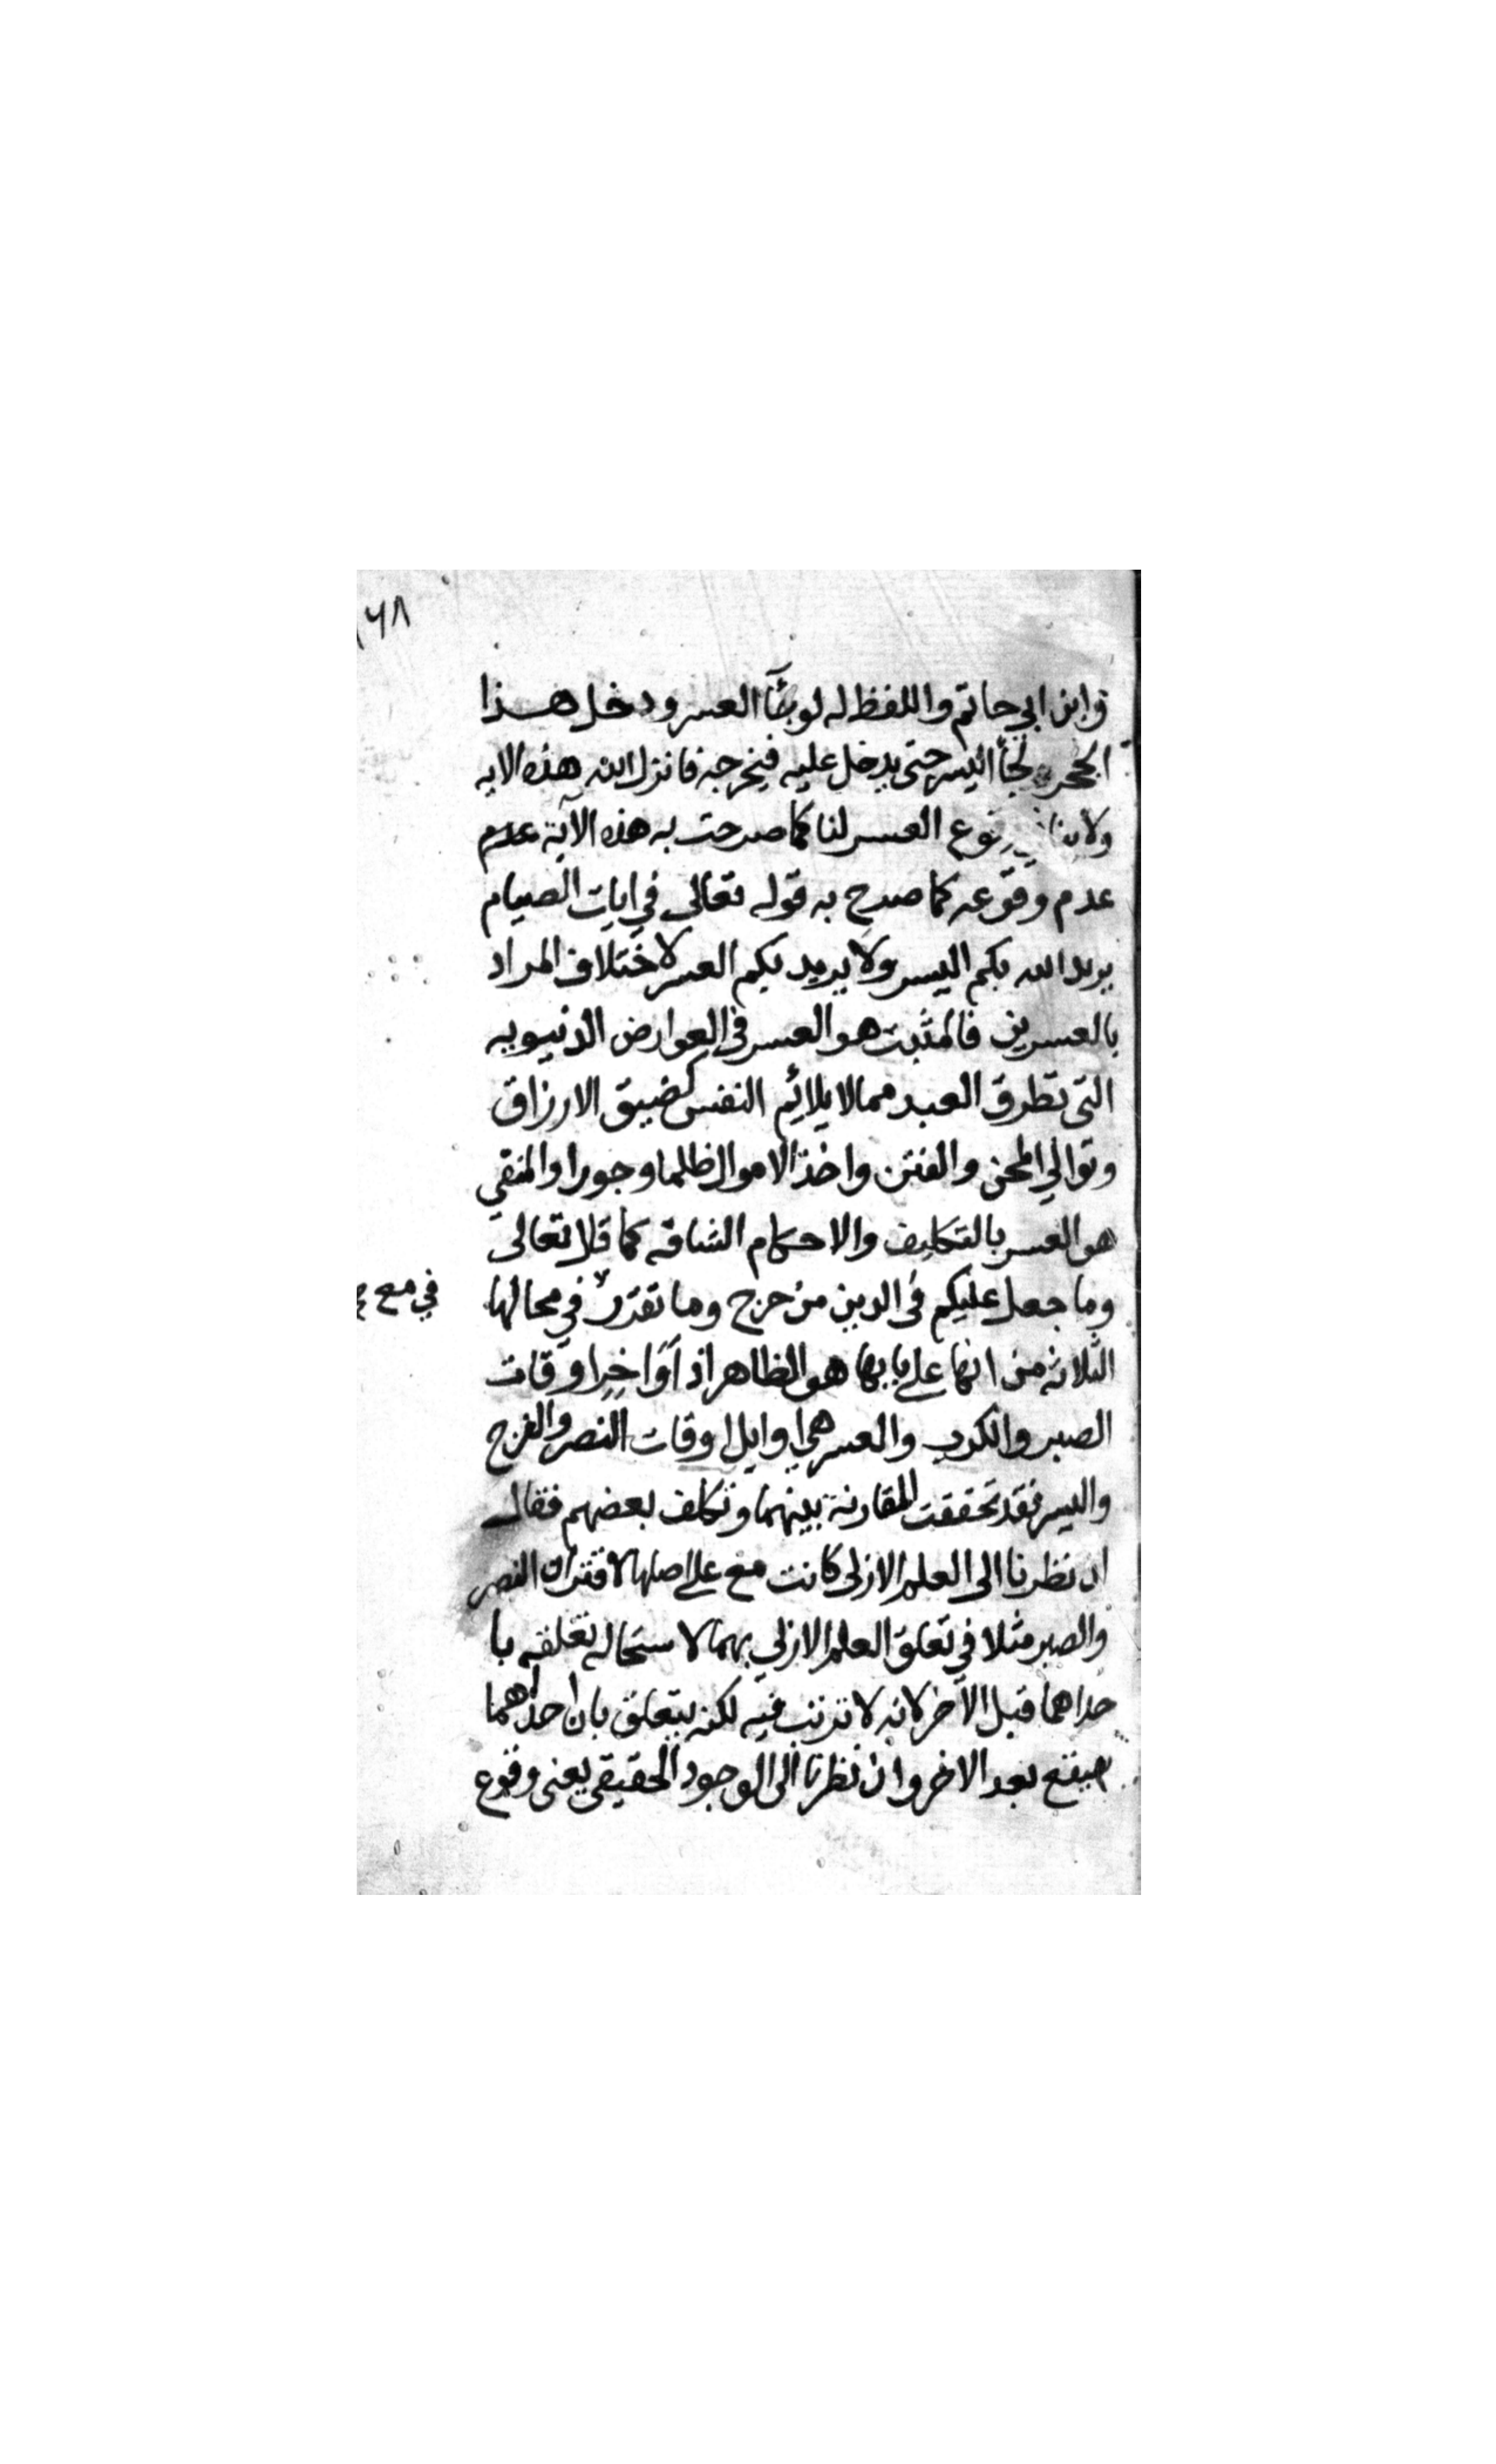 ١٦٨
وابن ابي حاتم واللفظ له لو جآ العسر ودخل هذا
الجحر لجأ اليسر حتى يدخل عليه فيخرجه فانزل الله هذه الايه
ولا ينافي وقوع العسر لنا كما صرحت به هذه الآية عدم
عدم وقوعه كما صرح به قوله تعالى في ايات الصيام
يريد الله بكم اليسر ولا يريد بكم العسر لاختلاف المراد
بالعسرين فالمثبت هو العسر في العوارض الدنيويه
التي تطرق العبد مما لا يلائم النفس كضيق الارزاق
وتوالي المحن والفتن واخذ الاموال ظلما وجورا والمنفي
هو العسر بالتكليف والاحكام الشاقه كما قلا تعالى
وما جعل عليكم في الدين من حرج وما تقرر في محالها
في مع
الثلاثه من انها على بابها هو الظاهر اذ أواخر اوقات
الصبر والكرب والعسر هي اوايل اوقات النصر والفرج
واليسر فقد تحققت المقارنة بينهما وتكلف بعضهم فقال
ان نظرنا الى العلم الازلى كانت مع على اصلها لاقتران النصر
والصبر مثلا في تعلق العلم الازلي بهما لاستحاله تعلقه با
حداهما قبل الآخر لانه لا ترتب فيه لكنه يتعلق بان احداهما
سيقع بعد الاخر وان نظرنا الى الوجود الحقيقي يعنى وقوع